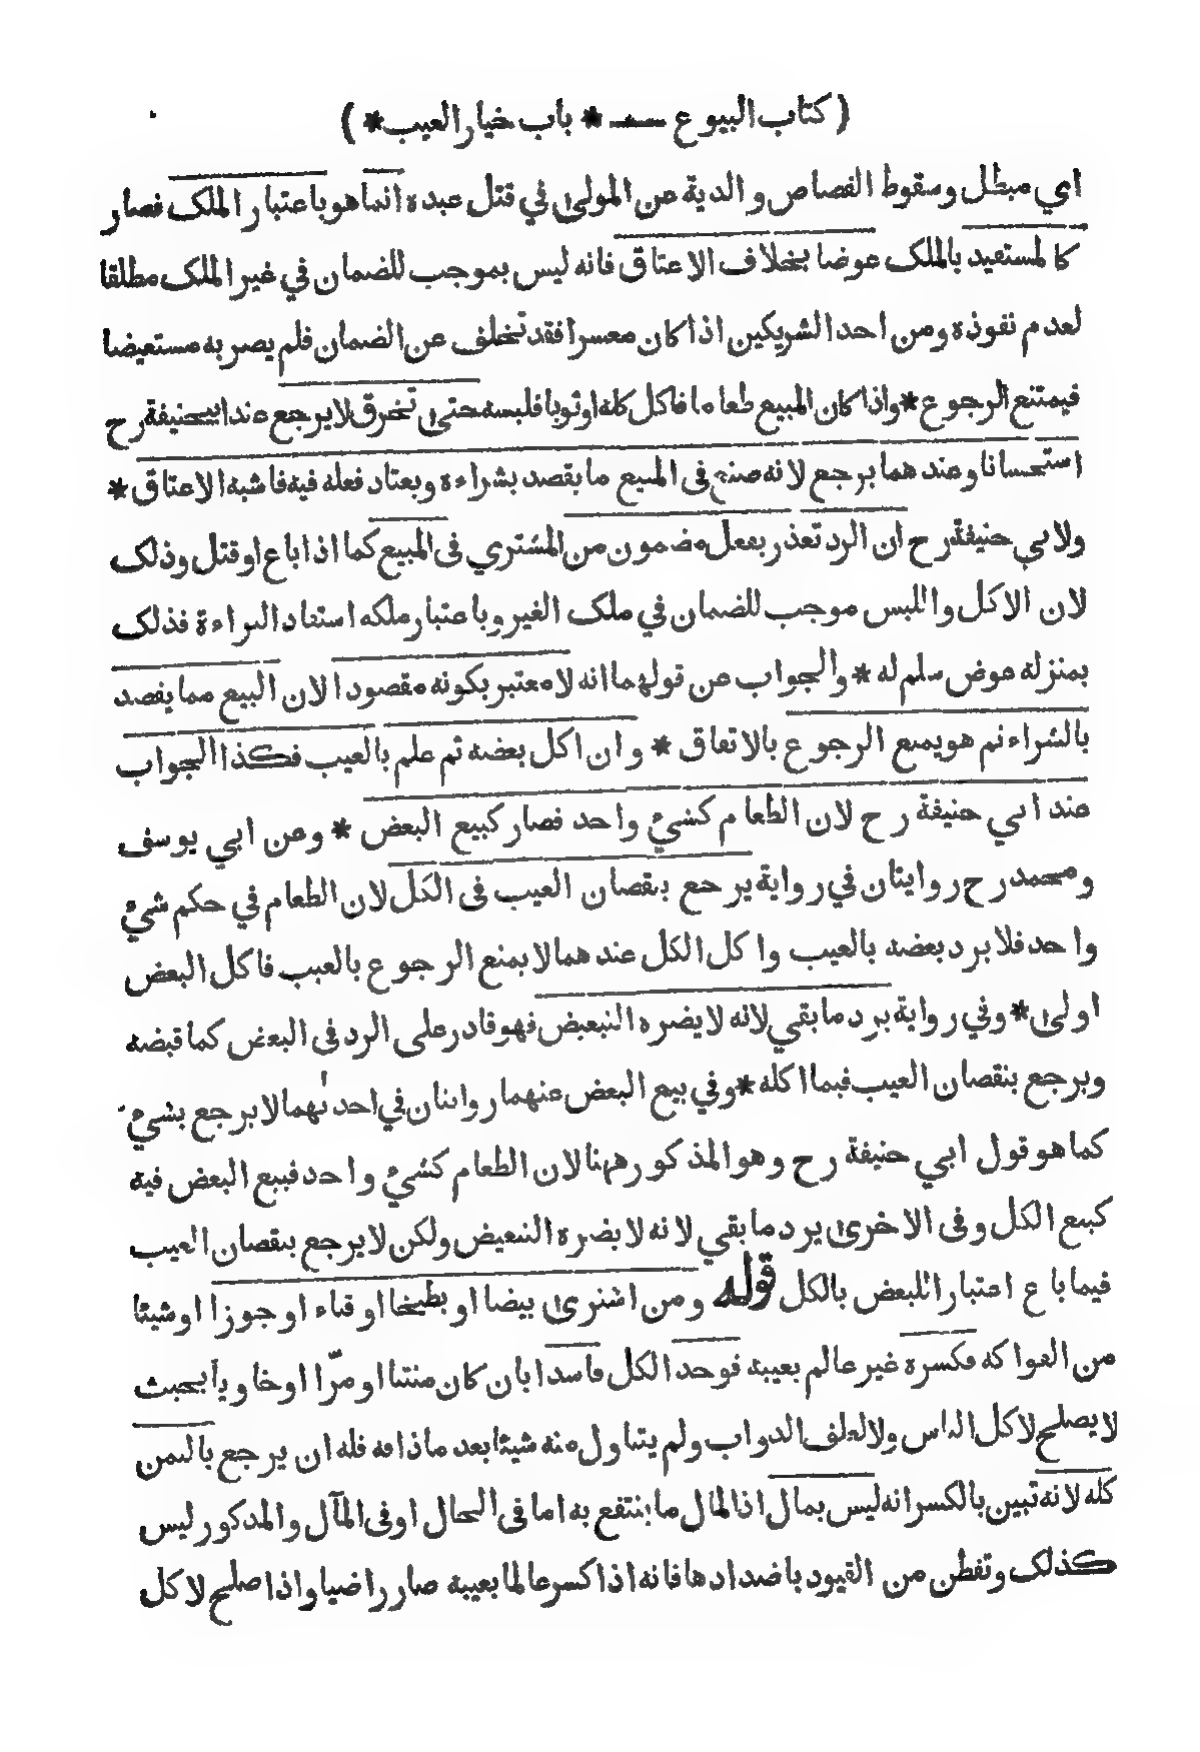 ( كتاب البيوع — * باب خيار العيب * )
اي مبطل وسقوط القصاص والدية عن المولى في قتل عبده انما هو باعتبار الملك فصار
كالمستفيد بالملك عوضا بخلاف الاعتاق فانه ليس بموجب للضمان في غير الملك مطلقا
لعدم نفوذه ومن احد الشريكين اذا كان معسرا فقد تخلف عن الضمان فلم يصر به مستعيضا
فيمتنع الرجوع * واذا كان المبيع طعاما فاكل كله او ثوبا فلبسه حتى تخرق لا يرجع عند ابيحنيفة رح
استحسانا وعندهما يرجع لانه صنع فى المبيع ما يقصد بشراءه ويعتاد فعله فيه فاشبه الاعتاق *
ولابي حنيفة رح ان الرد تعذر بفعل مضمون من المشتري فى المبيع كما اذا باع او قتل وذلك
لان الاكل واللبس موجب للضمان في ملك الغير وباعتبار ملكه استفاد البراءة فذلك
بمنزلة عوض سلم له * والجواب عن قولهما انه لا معتبر بكونه مقصودا لان البيع مما يقصد
بالشراء ثم هو يمنع الرجوع بالاتفاق * وان اكل بعضه ثم علم بالعيب فكذا الجواب
عند ابي حنيفة رح لان الطعام كشيء واحد فصار كبيع البعض * وعن ابي يوسف
ومحمد رح روايتان في رواية يرجع بنقصان العيب فى الكل لان الطعام في حكم شيء
واحد فلا يرد بعضه بالعيب واكل الكل عندهما لا يمنع الرجوع بالعيب فاكل البعض
اولى * وفي رواية يرد ما بقي لانه لا يضره التبعيض فهو قادر على الرد فى البعض كما قبضه
ويرجع بنقصان العيب فيما اكله * وفي بيع البعض عنهما روايتان في احدٰىهما لا يرجع بشيء
كما هو قول ابي حنيفة رح وهو المذكور ههنا لان الطعام كشيء واحد فبيع البعض فيه
كبيع الكل وفى الاخرى يرد ما بقي لانه لا يضره التبعيض ولكن لا يرجع بنقصان العيب
فيما باع اعتبارا للبعض بالكل قوله ومن اشترى بيضا او بطيخا او قثاء او جوزا او شيئا
من الفواكه فكسره غير عالم بعيبه فوجد الكل فاسدا بان كان منتنا او مرّا او خاويا بحيث
لا يصلح لاكل الناس ولا لعلف الدواب ولم يتناول منه شيئا بعد ما ذاقه فله ان يرجع بالثمن
كله لانه تبين بالكسر انه ليس بمال اذ المال ما ينتفع به اما فى الحال او فى المآل والمذكور ليس
كذلك وتفطن من القيود باضدادها فانه اذا كسر عالما بعيبه صار راضيا واذا صلح لاكل